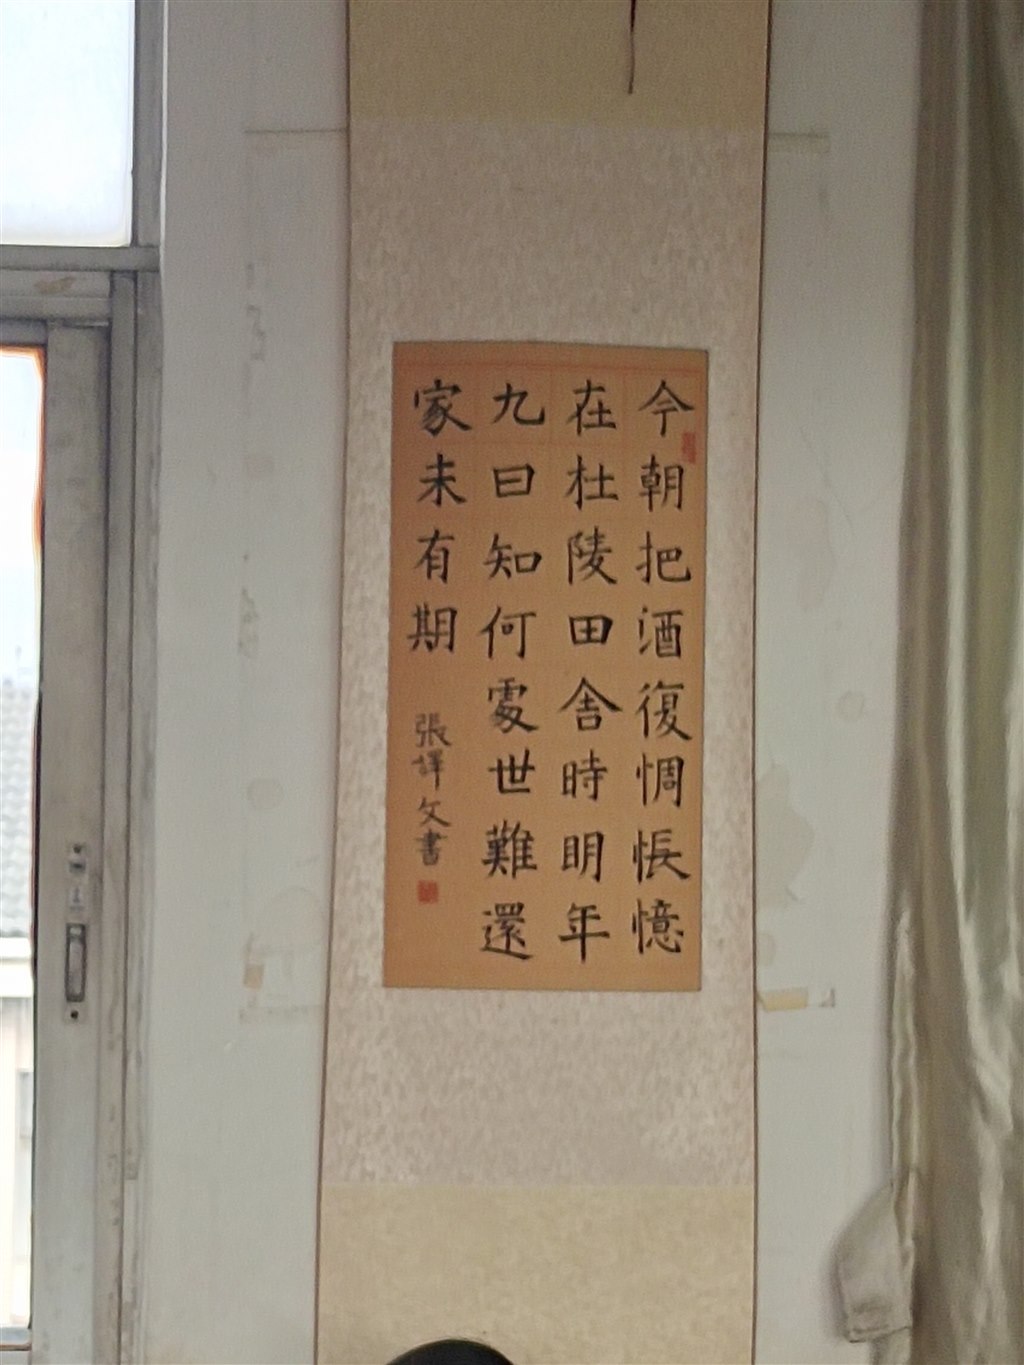 今朝把酒復惆悵憶
在杜陵田舍時明年
九日知何處世難還
家未有期
張譯文書